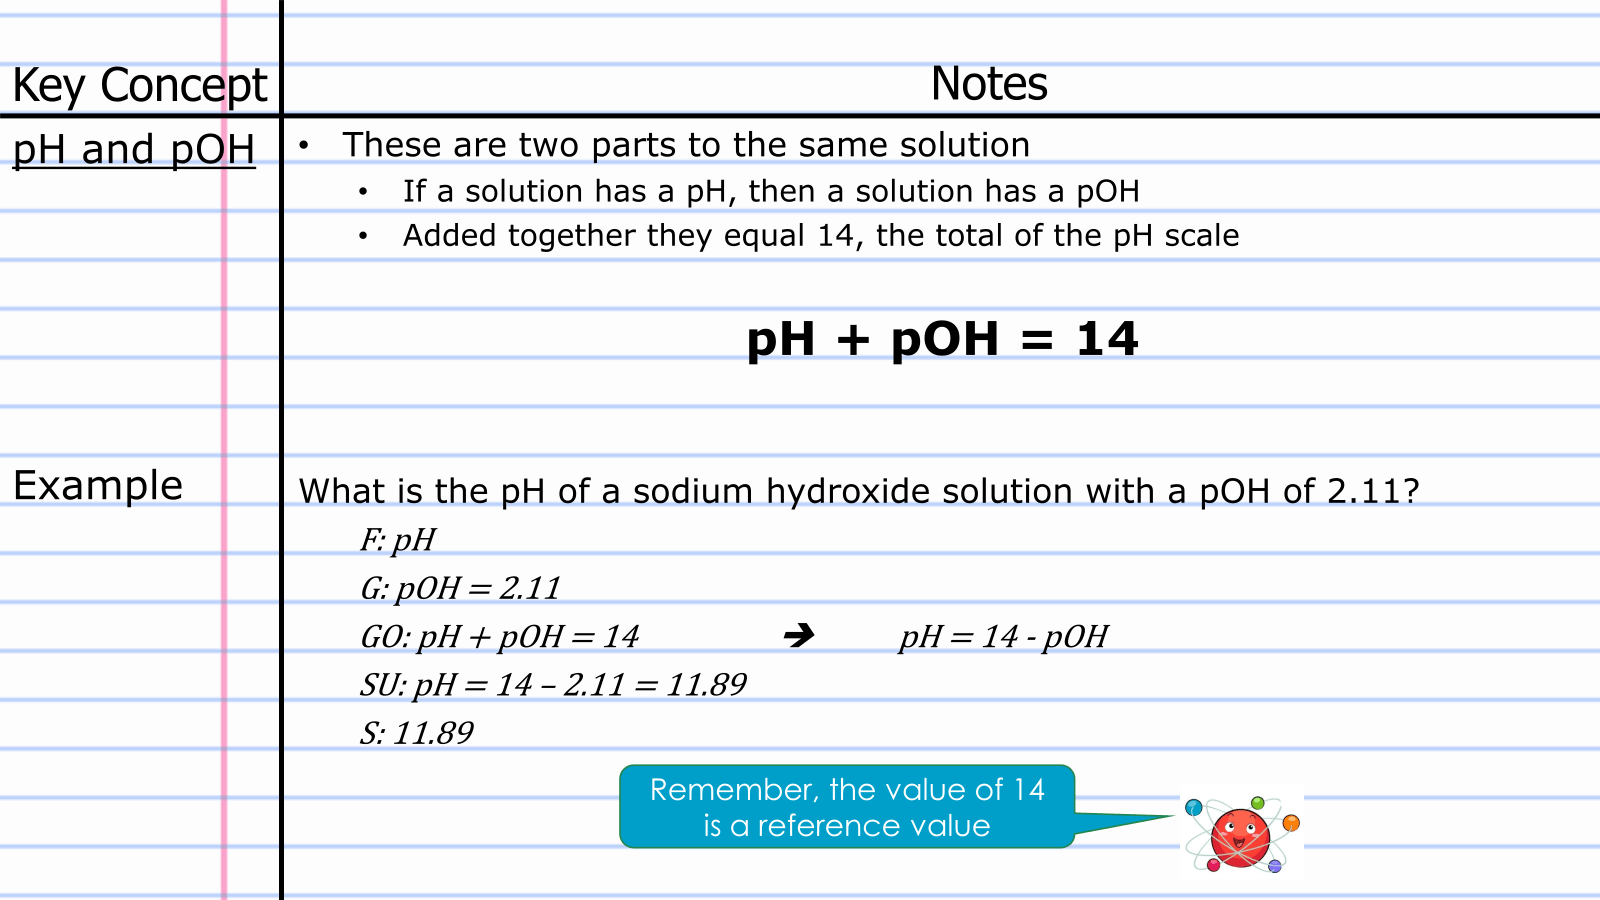 Key Concept
Notes
pH and pOH
• These are two parts to the same solution
• If a solution has a pH, then a solution has a pOH
• Added together they equal 14, the total of the pH scale
pH + pOH = 14
Example
What is the pH of a sodium hydroxide solution with a pOH of 2.11?
F: pH
G: pOH = 2.11
GO: pH + pOH = 14 ➔ pH = 14 - pOH
SU: pH = 14 – 2.11 = 11.89
S: 11.89
Remember, the value of 14
is a reference value